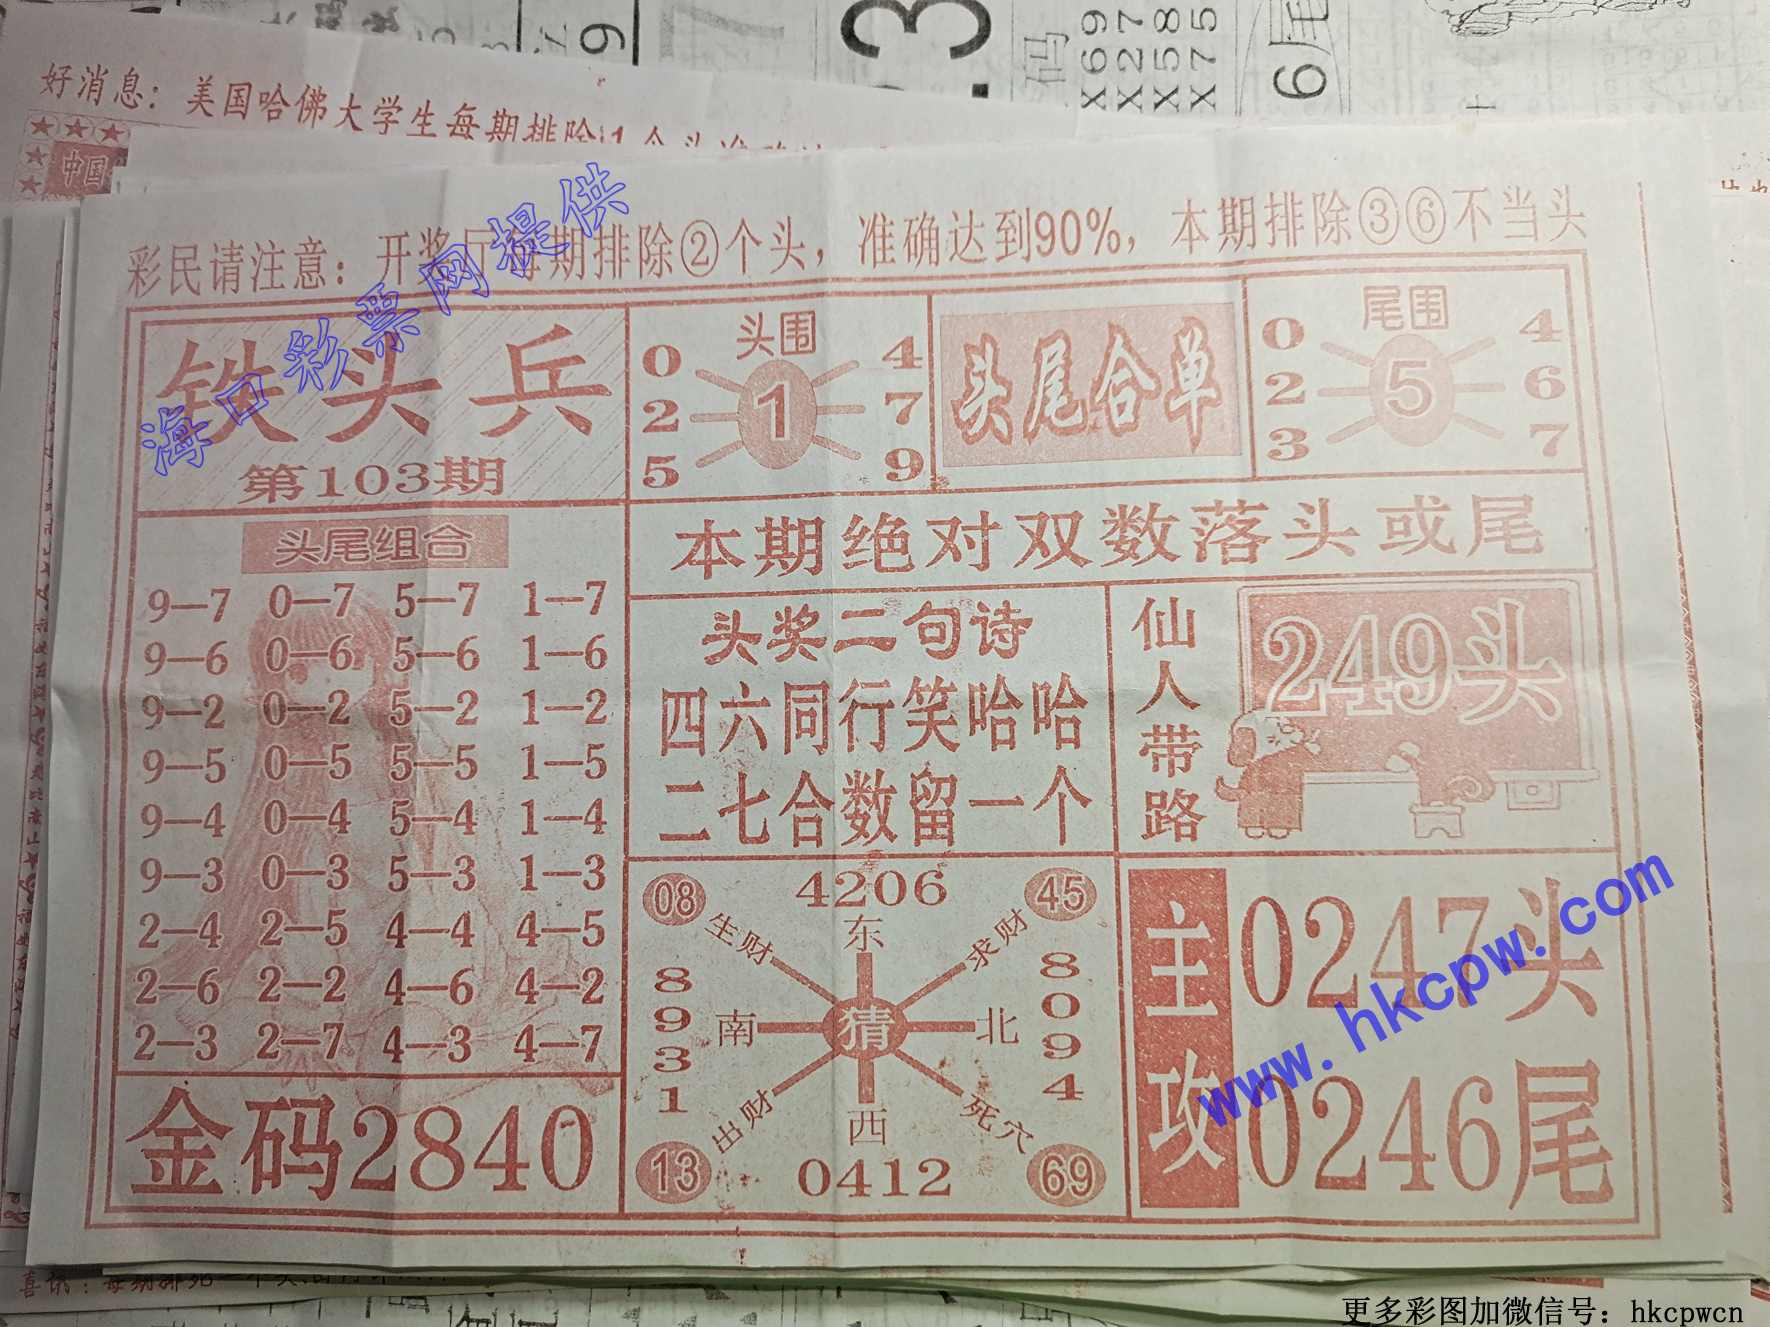 好消息：美国哈佛大学生每期排除1个头准确
中国
X69
X27
X58
X75
6尾
彩民请注意：开奖厅每期排除②个头，准确达到90%，本期排除③⑥不当头
铁头兵
第103期
头围
0 4
2 1 7
5 9
头尾合单
尾围
0 4
2 5 6
3 7
本期绝对双数落头或尾
头尾组合
9—7 0—7 5—7 1—7
9—6 0—6 5—6 1—6
9—2 0—2 5—2 1—2
9—5 0—5 5—5 1—5
9—4 0—4 5—4 1—4
9—3 0—3 5—3 1—3
2—4 2—5 4—4 4—5
2—6 2—2 4—6 4—2
2—3 2—7 4—3 4—7
金码2840
头奖二句诗
四六同行笑哈哈
二七合数留一个
仙人带路
249头
08 4206 45
生财 东 求财
8931 南 猜 北 8094
出财 西 死穴
13 0412 69
主攻
0247头
0246尾
海口彩票网提供
www.hkcpw.com
更多彩图加微信号：hkcpwcn